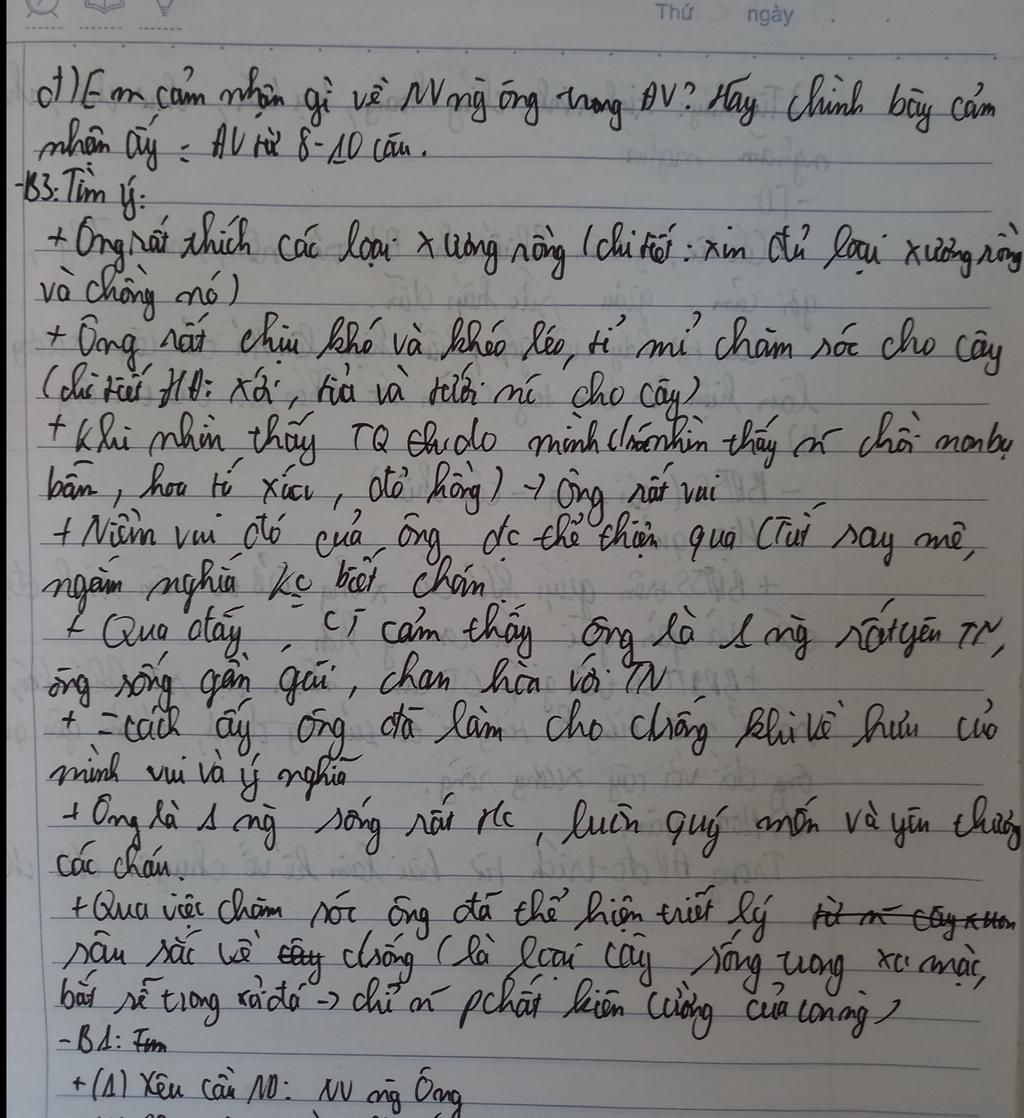 Thứ ngày . .
d) Em cảm nhận gì về NV ng ông trong ĐV? Hãy chình bày cảm
nhận ấy = ĐV từ 8-10 câu.
-B3: Tìm ý:
+ Ông rất thích các loại xương rồng (chi tiết: xin đủ loại xương rồng
và chồng nó)
+ Ông rất chịu khó và khéo léo, tỉ mỉ chăm sóc cho cây
(chi tiết HĐ: xới, tỉa và tưới nc cho cây)
+ Khi nhìn thấy TQ do mình nhìn thấy n~ chồi non bụ
bẫm, hoa tí xíu, đỏ hồng) → ông rất vui
+ Niềm vui đó của ông đc thể hiện qua say mê,
ngắm nghía ko biết chán.
+ Qua đấy, cảm thấy ông là 1 ng rất yêu TN,
ông sống gần gũi, chan hòa với TN
+ = cách ấy ông đã làm cho csống khi về hưu của
mình vui và ý nghĩa
+ Ông là 1 ng sống rất t/c, luôn quý mến và yêu thương
các cháu.
+ Qua việc chăm sóc ông đã thể hiện triết lý từ n~ cây xươn
sâu sắc về cây csống (là loại cây sống trong sa mạc,
bắt rễ trong sỏi đá → chỉ n~ pchất kiên cường của con ng)
-B1:
+ (1) Yêu cầu ND: NV ng Ông